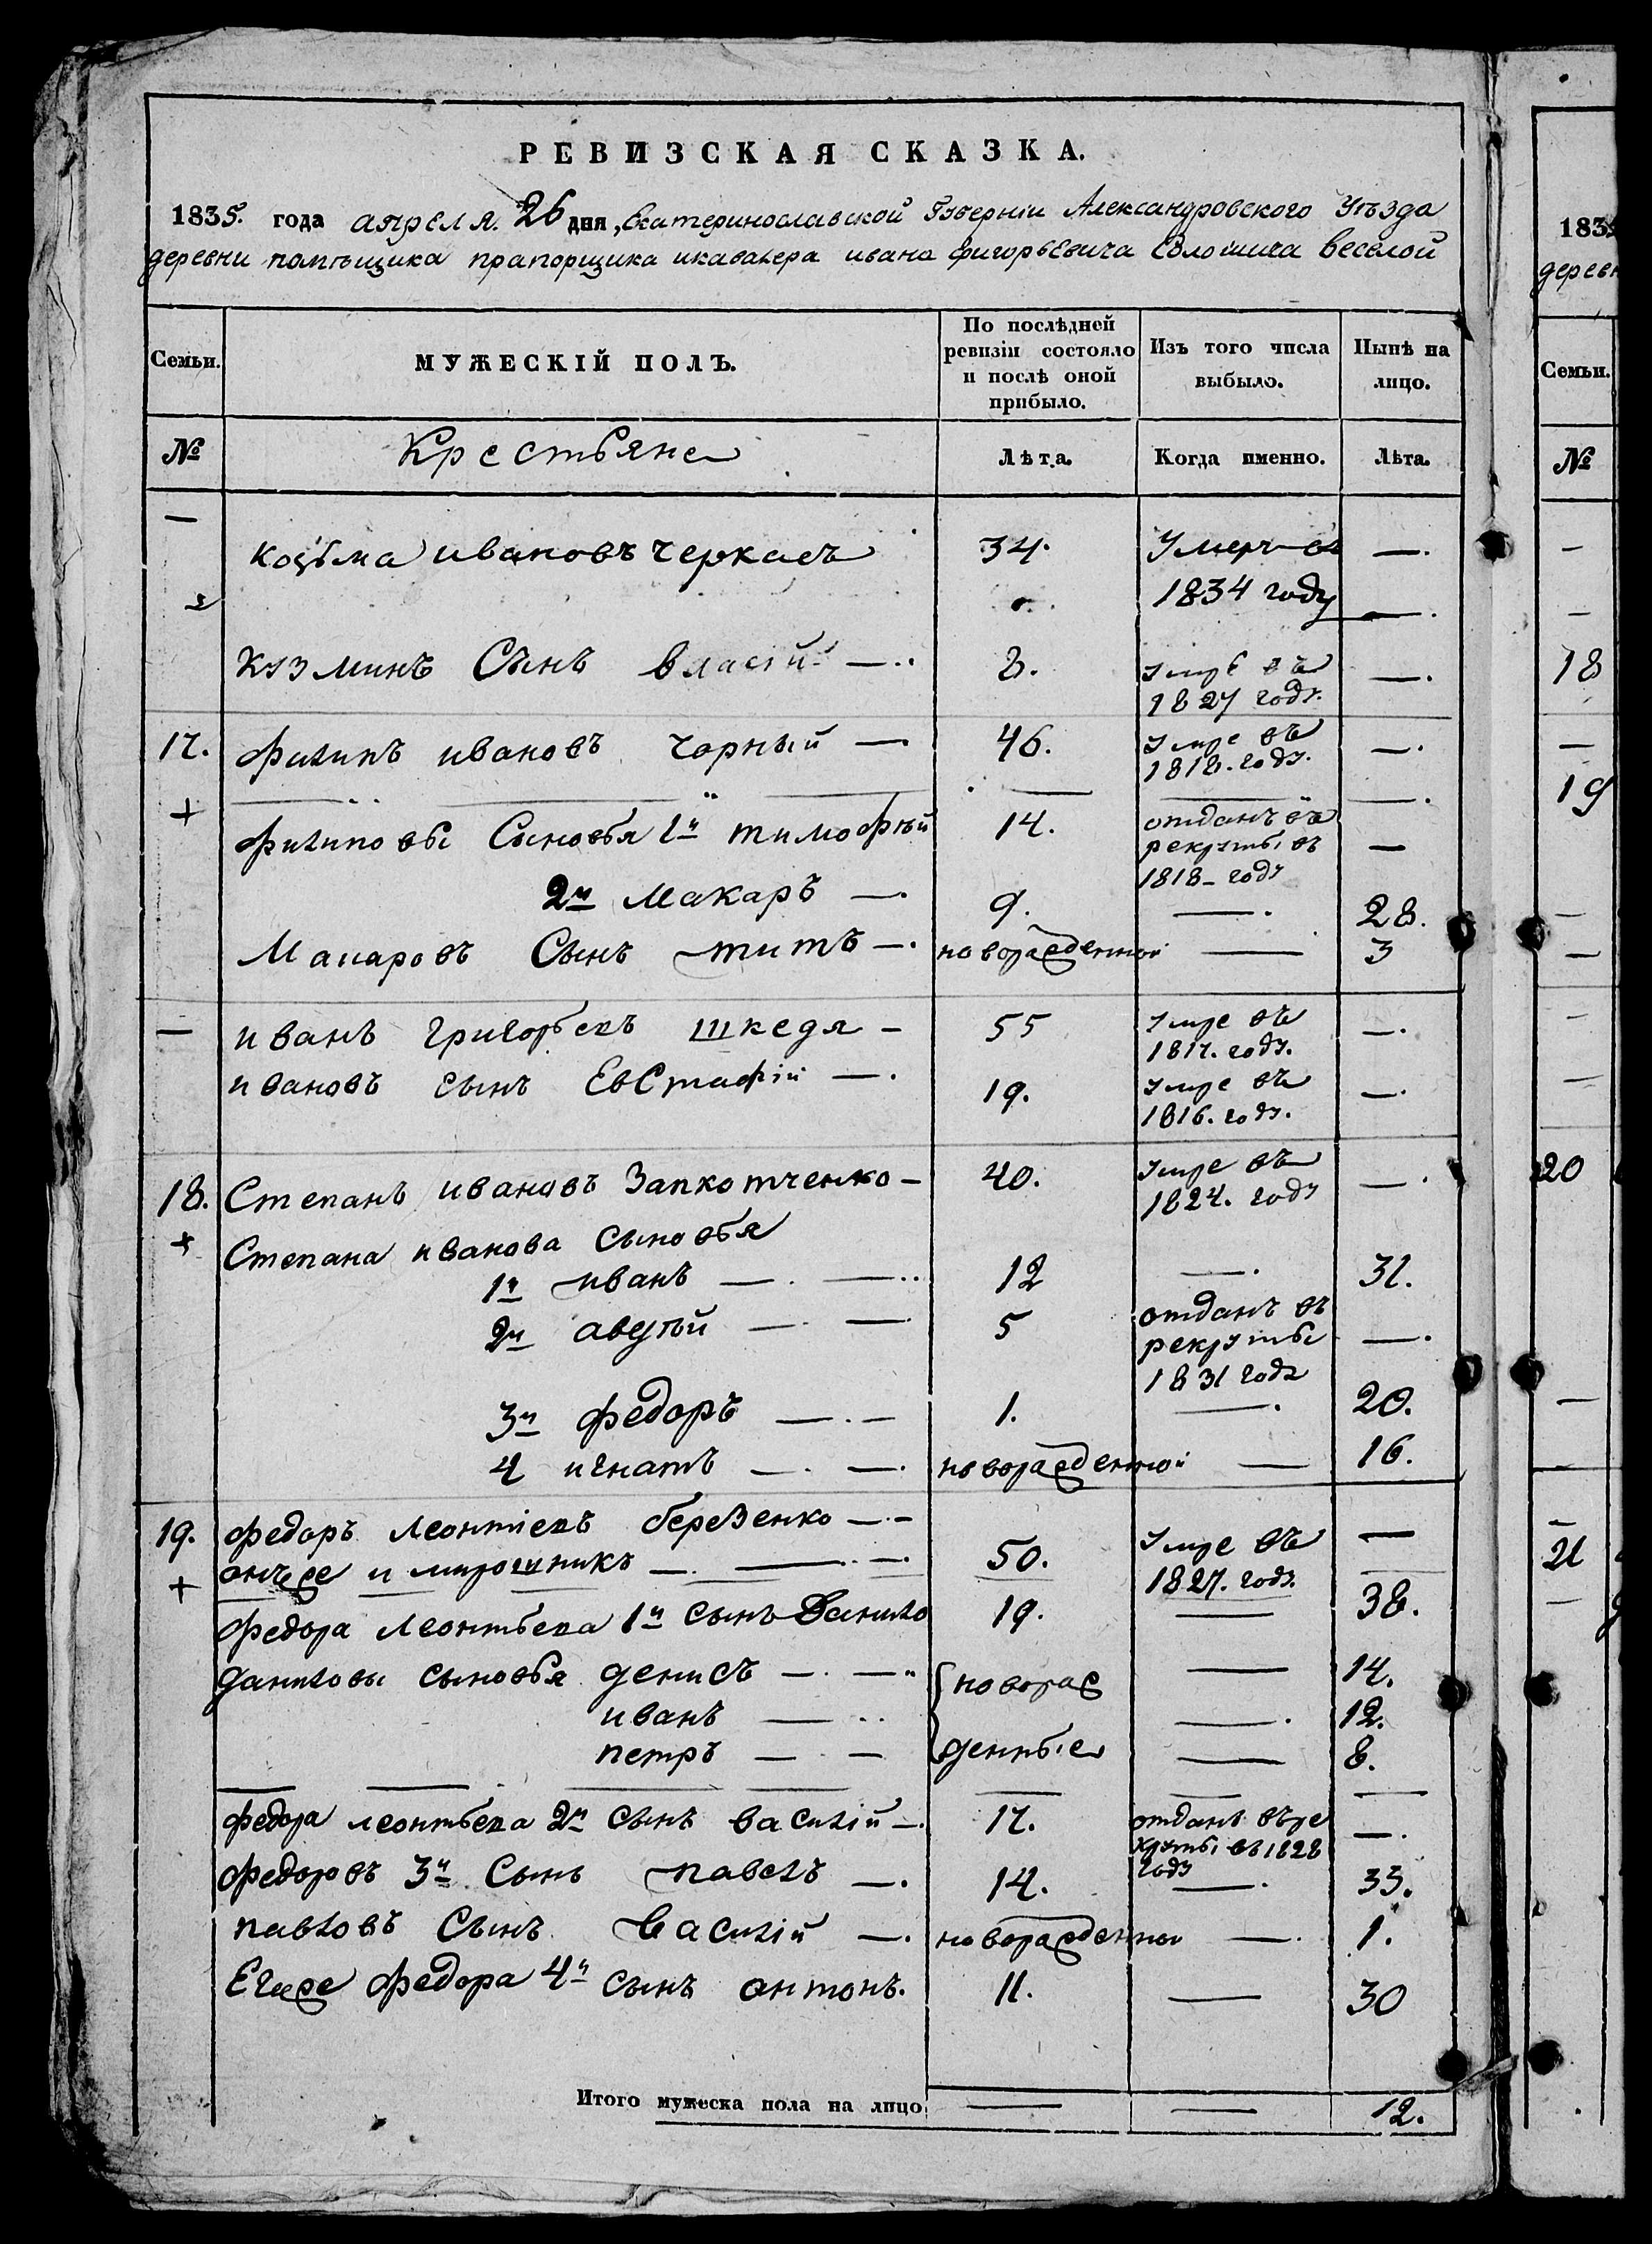 РЕВИЗСКАЯ СКАЗКА.
1835. года апреля. 26 дня, Екатеринославской Губерніи Александровского Уѣзда
деревни помѣщика прапорщика икавалера ивана Веселой
Семьи. МУЖЕСКІЙ ПОЛЪ. По послѣдней ревизіи состояло и послѣ оной прибыло. Изъ того числа выбыло. Нынѣ на лицо.
№ Крестьяне Лѣта. Когда именно. Лѣта.
—
козьма ивановъ черкасъ 34. Умеръ въ —.
1834 году —.
кузминъ Сынъ власій —.. 8. умре въ —.
1827 году.
17. филипъ ивановъ чорный —. 46. умре въ —.
1818. году.
+ филиповы Сыновья 1й тимофѣй 14. отданъ въ
рекруты въ —
1818 – году
2й Макаръ —. 9. —. 28.
Макаровъ Сынъ титъ —. новорожденной — 3
— иванъ григорьевъ шкедя – 55 умре въ —.
1817. году.
ивановъ сынъ Евстафій —. 19. умре въ —.
1816. году.
18. Степанъ ивановъ Запкотченко – 40. умре въ —.
1824. году
+ Степана иванова сыновья
1й иванъ —. —.. 12 —. 31.
2й авдѣй —. — 5 отданъ въ
рекруты —.
1831 году
3й федоръ —.— 1. —. 20.
4 игнатъ —. —. новорожденной — 16.
19. федоръ леонтіевъ березенко —.– —
онъже и мирошникъ —. —.. —. 50. Умре въ
1827. году.
+ федора леонтьева 1й сынъ Данило 19. — 38.
даниловы сыновья денисъ —. —.. новорож — 14.
иванъ — .. —. 12.
петръ —. — денные — 8.
федора леонтьева 2й сынъ василій —. 17. отданъ въре
круты въ 1828 —.
году
федоровъ 3й Сынъ павелъ —. 14. —. 33.
павловъ Сынъ Василій —. новорожденной —. 1.
Егоже федора 4й сынъ антонъ. 11. — 30
Итого мужеска пола на лицо — — 12.
1835
дерев
Семьи.
№
18
19
20
21